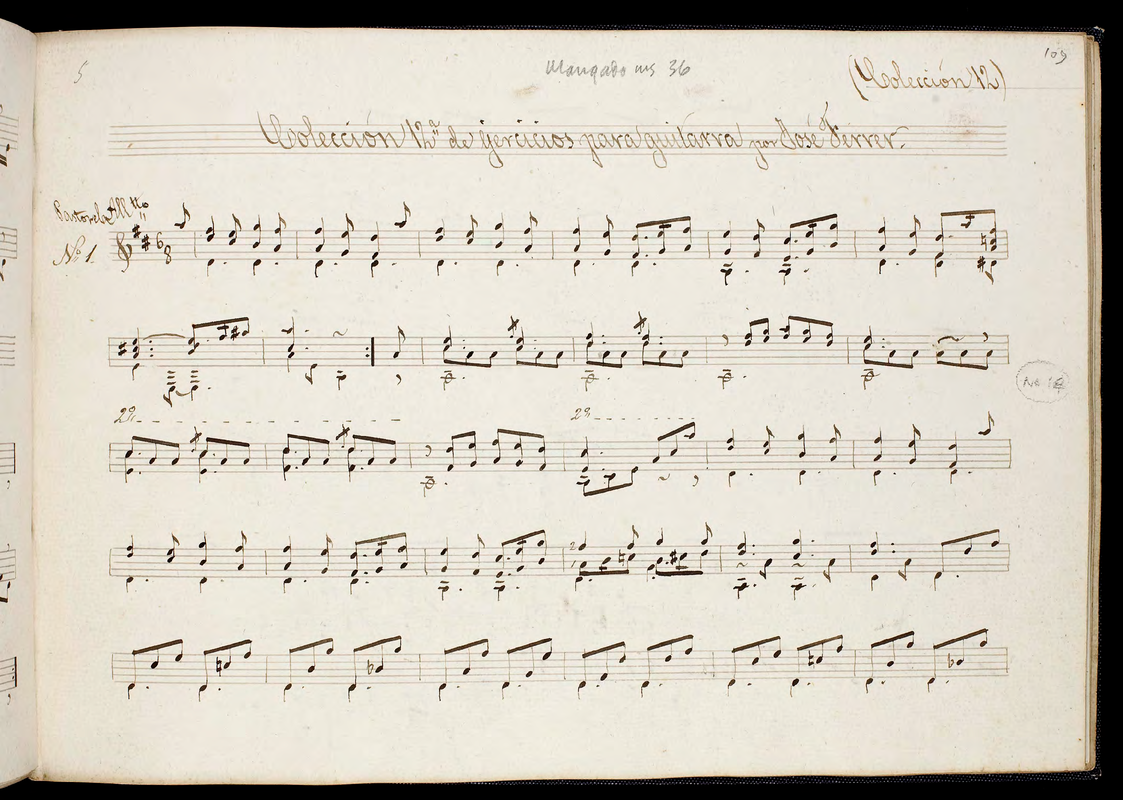 5
Mangado ms 36
109
(Colección 12)
Colección 12ª de ejercicios para guitarra por José Ferrer.
Pastorela Allᵗᵗᵒ
Nº 1
6
8
2ª
2ª